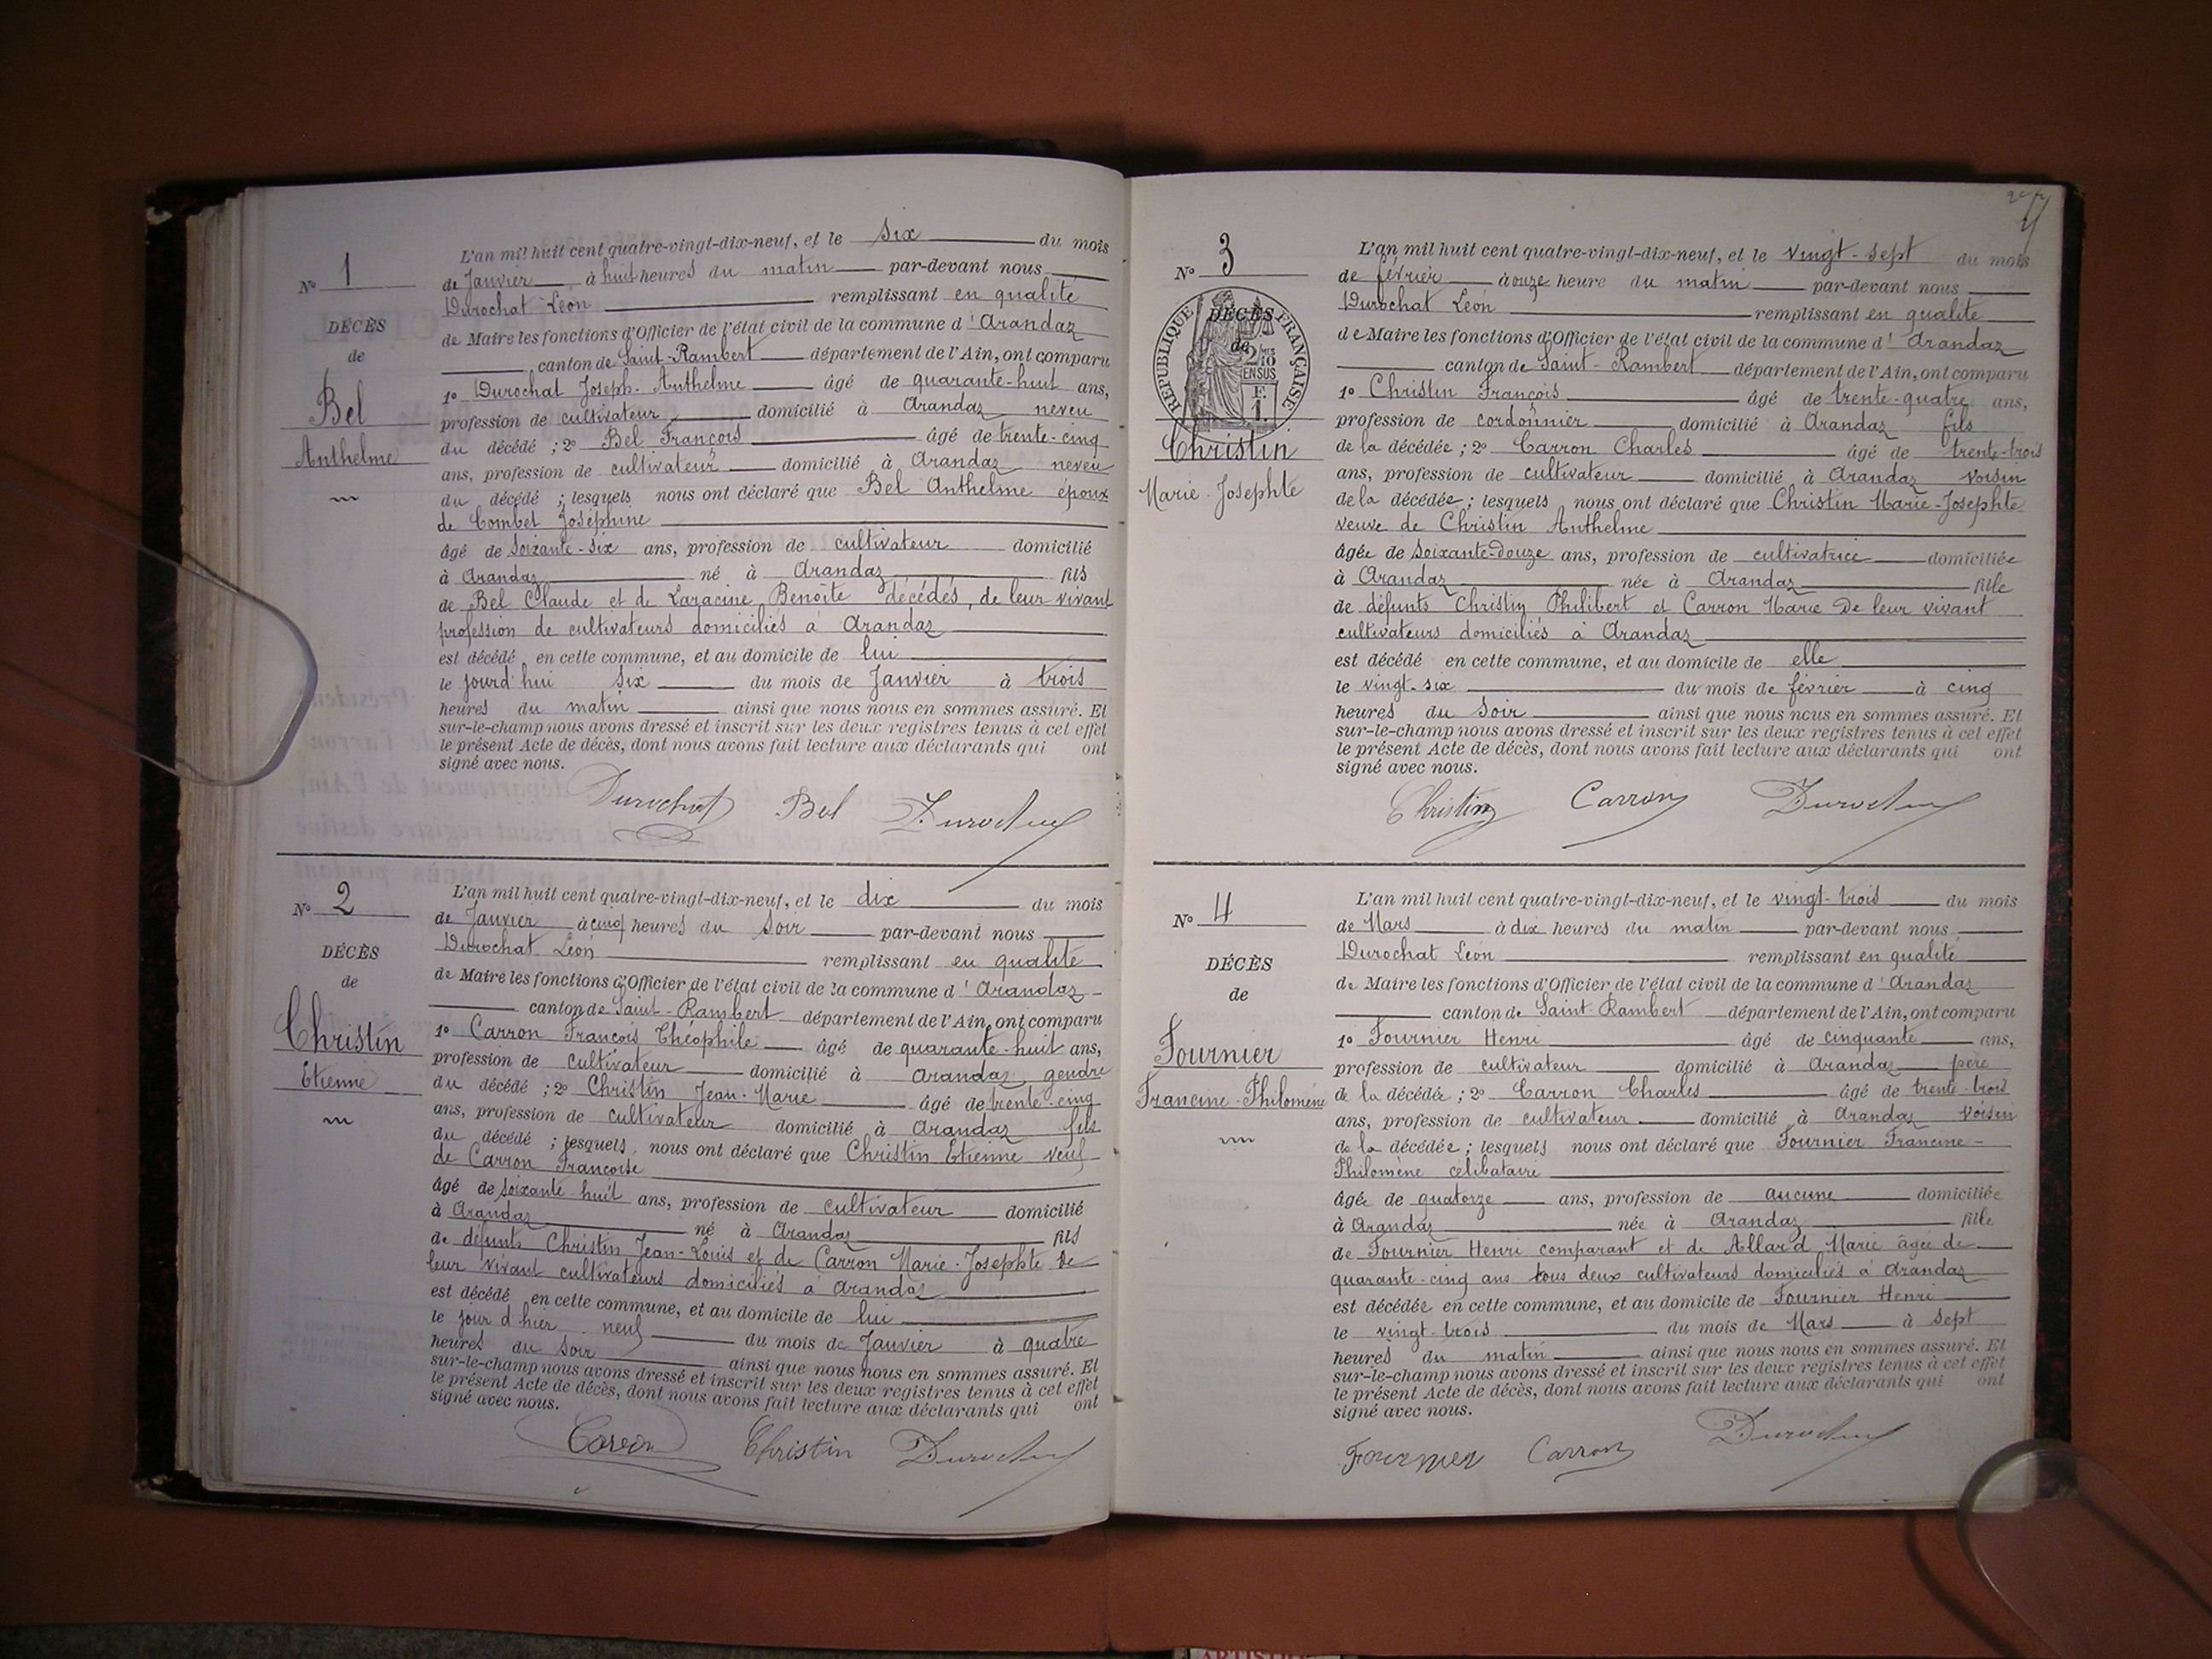 Nº 1
DÉCÈS
de
Bel
Anthelme
L'an mil huit cent quatre-vingt-dix-neuf, et le six du mois
de Janvier à huit heures du matin par-devant nous
Durochat Léon remplissant en qualité
de Maire les fonctions d'Officier de l'état civil de la commune d'Arandaz
canton de Saint-Rambert département de l'Ain, ont comparu
1º Durochat Joseph-Anthelme âgé de quarante-huit ans,
profession de cultivateur domicilié à Arandaz neveu
du décédé ; 2º Bel François âgé de trente-cinq
ans, profession de cultivateur domicilié à Arandaz neveu
du décédé ; lesquels nous ont déclaré que Bel Anthelme époux
de Combet Joséphine
âgé de soixante-six ans, profession de cultivateur domicilié
à Arandaz né à Arandaz fils
de Bel Claude et de Laracine Benoîte décédés, de leur vivant
profession de cultivateurs domiciliés à Arandaz
est décédé en cette commune, et au domicile de lui
le jourd'hui six du mois de Janvier à trois
heures du matin ainsi que nous nous en sommes assuré. Et
sur-le-champ nous avons dressé et inscrit sur les deux registres tenus à cet effet
le présent Acte de décès, dont nous avons fait lecture aux déclarants qui ont
signé avec nous.
Durochat Bel Durochat
Nº 2
DÉCÈS
de
Christin
Etienne
L'an mil huit cent quatre-vingt-dix-neuf, et le dix du mois
de Janvier à cinq heures du soir par-devant nous
Durochat Léon remplissant en qualité
de Maire les fonctions d'Officier de l'état civil de la commune d'Arandaz
canton de Saint-Rambert département de l'Ain, ont comparu
1º Carron François Théophile âgé de quarante-huit ans,
profession de cultivateur domicilié à Arandaz gendre
du décédé ; 2º Christin Jean-Marie âgé de trente-cinq
ans, profession de cultivateur domicilié à Arandaz fils
du décédé ; lesquels nous ont déclaré que Christin Etienne veuf
de Carron Françoise
âgé de soixante-huit ans, profession de cultivateur domicilié
à Arandaz né à Arandaz fils
de défunts Christin Jean-Louis et de Carron Marie-Josephte de
leur vivant cultivateurs domiciliés à Arandaz
est décédé en cette commune, et au domicile de lui
le jour d'hier neuf du mois de Janvier à quatre
heures du soir ainsi que nous nous en sommes assuré. Et
sur-le-champ nous avons dressé et inscrit sur les deux registres tenus à cet effet
le présent Acte de décès, dont nous avons fait lecture aux déclarants qui ont
signé avec nous.
Carron Christin Durochat
Nº 3
RÉPUBLIQUE FRANÇAISE
DÉCÈS
de
Christin
Marie-Josephte
L'an mil huit cent quatre-vingt-dix-neuf, et le vingt-sept du mois
de février à onze heure du matin par-devant nous
Durochat Léon remplissant en qualité
de Maire les fonctions d'Officier de l'état civil de la commune d'Arandaz
canton de Saint-Rambert département de l'Ain, ont comparu
1º Christin François âgé de trente-quatre ans,
profession de cordonnier domicilié à Arandaz fils
de la décédée ; 2º Carron Charles âgé de trente-trois
ans, profession de cultivateur domicilié à Arandaz voisin
de la décédée ; lesquels nous ont déclaré que Christin Marie-Josephte
veuve de Christin Anthelme
âgée de soixante-douze ans, profession de cultivatrice domiciliée
à Arandaz née à Arandaz fille
de défunts Christin Philibert et Carron Marie de leur vivant
cultivateurs domiciliés à Arandaz
est décédé en cette commune, et au domicile de elle
le vingt-six du mois de février à cinq
heures du soir ainsi que nous nous en sommes assuré. Et
sur-le-champ nous avons dressé et inscrit sur les deux registres tenus à cet effet
le présent Acte de décès, dont nous avons fait lecture aux déclarants qui ont
signé avec nous.
Christin Carron Durochat
Nº 4
DÉCÈS
de
Fournier
Francine-Philomène
L'an mil huit cent quatre-vingt-dix-neuf, et le vingt-trois du mois
de Mars à dix heures du matin par-devant nous
Durochat Léon remplissant en qualité
de Maire les fonctions d'Officier de l'état civil de la commune d'Arandaz
canton de Saint-Rambert département de l'Ain, ont comparu
1º Fournier Henri âgé de cinquante ans,
profession de cultivateur domicilié à Arandaz père
de la décédée ; 2º Carron Charles âgé de trente-trois
ans, profession de cultivateur domicilié à Arandaz voisin
de la décédée ; lesquels nous ont déclaré que Fournier Francine-
Philomène célibataire
âgée de quatorze ans, profession de aucune domiciliée
à Arandaz née à Arandaz fille
de Fournier Henri comparant et de Allard Marie âgée de
quarante-cinq ans tous deux cultivateurs domiciliés à Arandaz
est décédée en cette commune, et au domicile de Fournier Henri
le vingt-trois du mois de Mars à sept
heures du matin ainsi que nous nous en sommes assuré. Et
sur-le-champ nous avons dressé et inscrit sur les deux registres tenus à cet effet
le présent Acte de décès, dont nous avons fait lecture aux déclarants qui ont
signé avec nous.
Fournier Carron Durochat